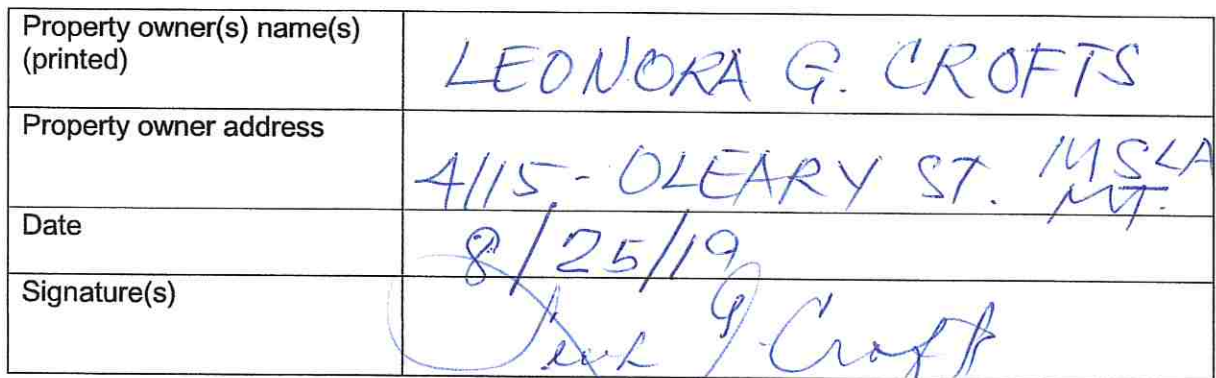 Property owner(s) name(s)
(printed)
LEONORA G. CROFTS
Property owner address
4115 - OLEARY ST. MSLA
MT.
Date
8/25/19
Signature(s)
G. Crofts